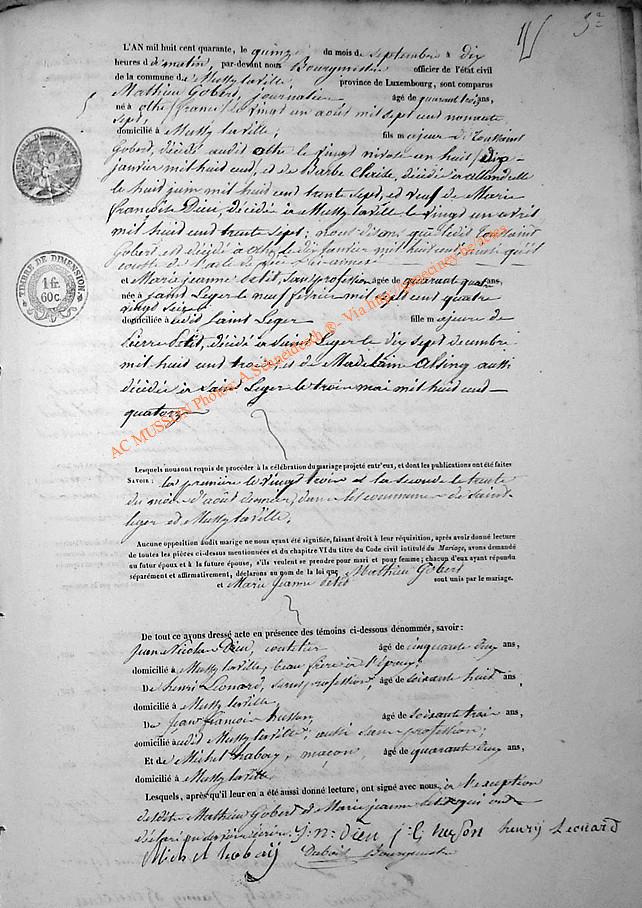 5e
L'AN mil huit cent quarante, le quinze du mois de septembre à dix
heures du matin, par-devant nous Bourgmestre officier de l'état civil
de la commune de Mussy laville, province de Luxembourg, sont comparus
Mathieu Gobert, journalier âgé de quarante trois ans,
né à othe (france) le vingt un aout mil sept cent nonante
sept,
domicilié à Mussy laville, fils majeur de Toussaint
Gobert, décédé audit othe le vingt nivose an huit (dix
janvier mil huit cent, et de Barbe décédée à allondrelle
le huit juin mil huit cent trente sept, et veuf de Marie
françoise Dieu, décédée à Mussy laville le vingt un avril
mil huit cent trente sept; que ledit Toussaint
Gobert est décédé à othe le dix janvier mil huit cent qu'il
conste de l'acte de
et Marie jeanne Petit, sans profession âgée de quarante quatre ans,
née à saint Leger le neuf février mil sept cent quatre
vingt seize
domiciliée audit Saint Leger fille majeure de
Pierre Petit, décédé à Saint Leger le dix sept decembre
mil huit cent trois, et de Madelaine aussi
décédée à Saint Leger le trois mai mil huit cent
quatorze
Lesquels nous ont requis de procéder à la célébration du mariage projeté entr'eux, et dont les publications ont été faites
SAVOIR : la première le vingt trois et la seconde le trente
du mois d'août dernier, dans les communes de saint
leger et Mussy laville,
Aucune opposition audit marige ne nous ayant été signifiée, faisant droit à leur réquisition, après avoir donné lecture
de toutes les pièces ci-dessus mentionnées et du chapitre VI du titre du Code civil intitulé du Mariage, avons demandé
au futur époux et à la future épouse, s'ils veulent se prendre pour mari et pour femme; chacun d'eux ayant répondu
séparément et affirmativement, déclarons au nom de la loi que Mathieu Gobert
et Marie Jeanne Petit sont unis par le mariage.
De tout ce ayons dressé acte en présence des témoins ci-dessous dénommés, savoir:
Jean Nicolas Dieu, âgé de cinquante deux ans,
domicilié à Mussy laville, beau frère à l'époux;
De henri Leonard, sans profession, âgé de soixante huit ans
domicilié à Mussy laville,
De Jean françois husson, âgé de soixante trois ans,
domicilié audit Mussy laville, aussi sans profession;
Et de Michel haboy, maçon, âgé de quarante deux ans,
domicilié à Mussy laville
Lesquels, après qu'il leur en a été aussi donné lecture, ont signé avec nous, à l'exception
desdits Mathieu Gobert et Marie jeanne Petit qui ont
déclaré ne savoir écrire. j. n. Dieu j. f. husson henry Leonard
Michel haboÿ Bourgmestre
TIMBRE DE DIMENSION
1 fr.
60c.
AC MUSSON Photos A.Schneider.xh ®- Via http://